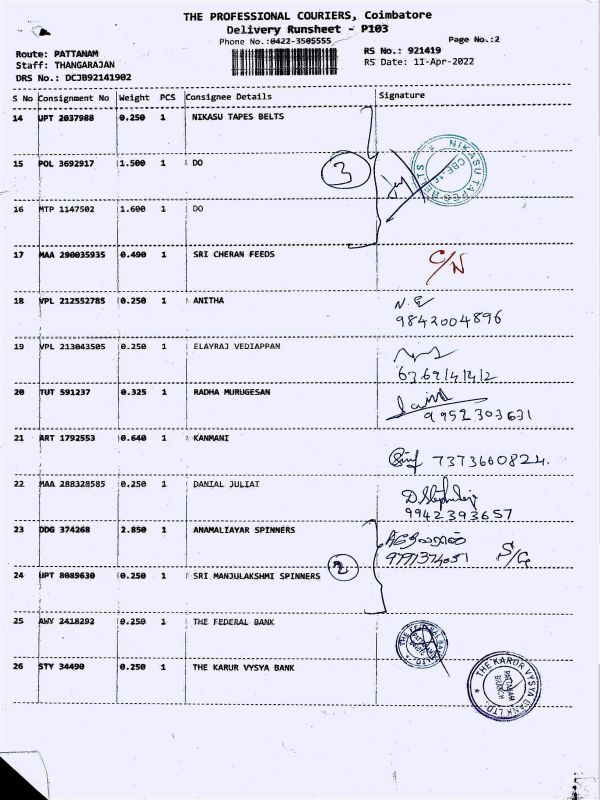 THE PROFESSIONAL COURIERS, Coimbatore
Delivery Runsheet - P103
Phone No.:0422-3505555
Page No.:2
Route: PATTANAM
Staff: THANGARAJAN
DRS No.: DCJB92141902
RS No.: 921419
RS Date: 11-Apr-2022
S No Consignment No Weight PCS Consignee Details Signature
14 UPT 2037988 0.250 1 NIKASU TAPES BELTS
15 POL 3692917 1.500 1 DO
3
NIKASU TAPES-BELTS
16 MTP 1147502 1.600 1 DO
17 MAA 290035935 0.490 1 SRI CHERAN FEEDS C/N
18 VPL 212552785 0.250 1 ANITHA
9842004896
19 VPL 213043505 0.250 1 ELAYRAJ VEDIAPPAN
20 TUT 591237 0.325 1 RADHA MURUGESAN
9952303631
21 ART 1792553 0.640 1 KANMANI
7373660824.
22 MAA 288328585 0.250 1 DANIAL JULIAT
9942393657
23 DDG 374268 2.850 1 ANAMALIAYAR SPINNERS
2
24 UPT 8089630 0.250 1 SRI MANJULAKSHMI SPINNERS
25 AWY 2418292 0.250 1 THE FEDERAL BANK
THE FEDERAL BANK LTD.
26 STY 34490 0.250 1 THE KARUR VYSYA BANK
THE KARUR VYSYA BANK LTD.
PATTANAM
BRANCH